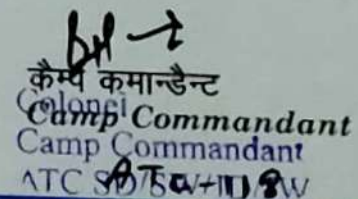 कैम्प कमान्डैन्ट
Colonel
Camp Commandant
Camp Commandant
ATC